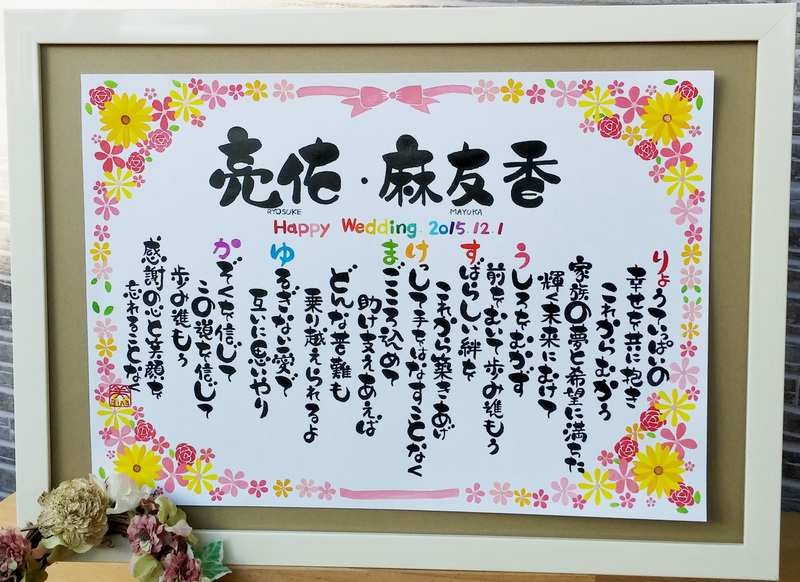 亮佑・麻友香
RYOSUKE MAYUKA
Happy Wedding. 2015.12.1
りょうていっぱいの
幸せを共に抱き
これからむかう
家族の夢と希望に満ちた
輝く未来にむけて
うしろをむかず
前をむいて歩み進もう
すばらしい絆を
これから築きあげ
けっして手をはなすことなく
まごころ込めて
助け支えあえば
どんな苦難も
乗り越えられるよ
ゆるぎない愛で
互いに思いやり
かぞくを信じて
この道を信じて
歩み進もう
感謝の心と笑顔を
忘れることなく